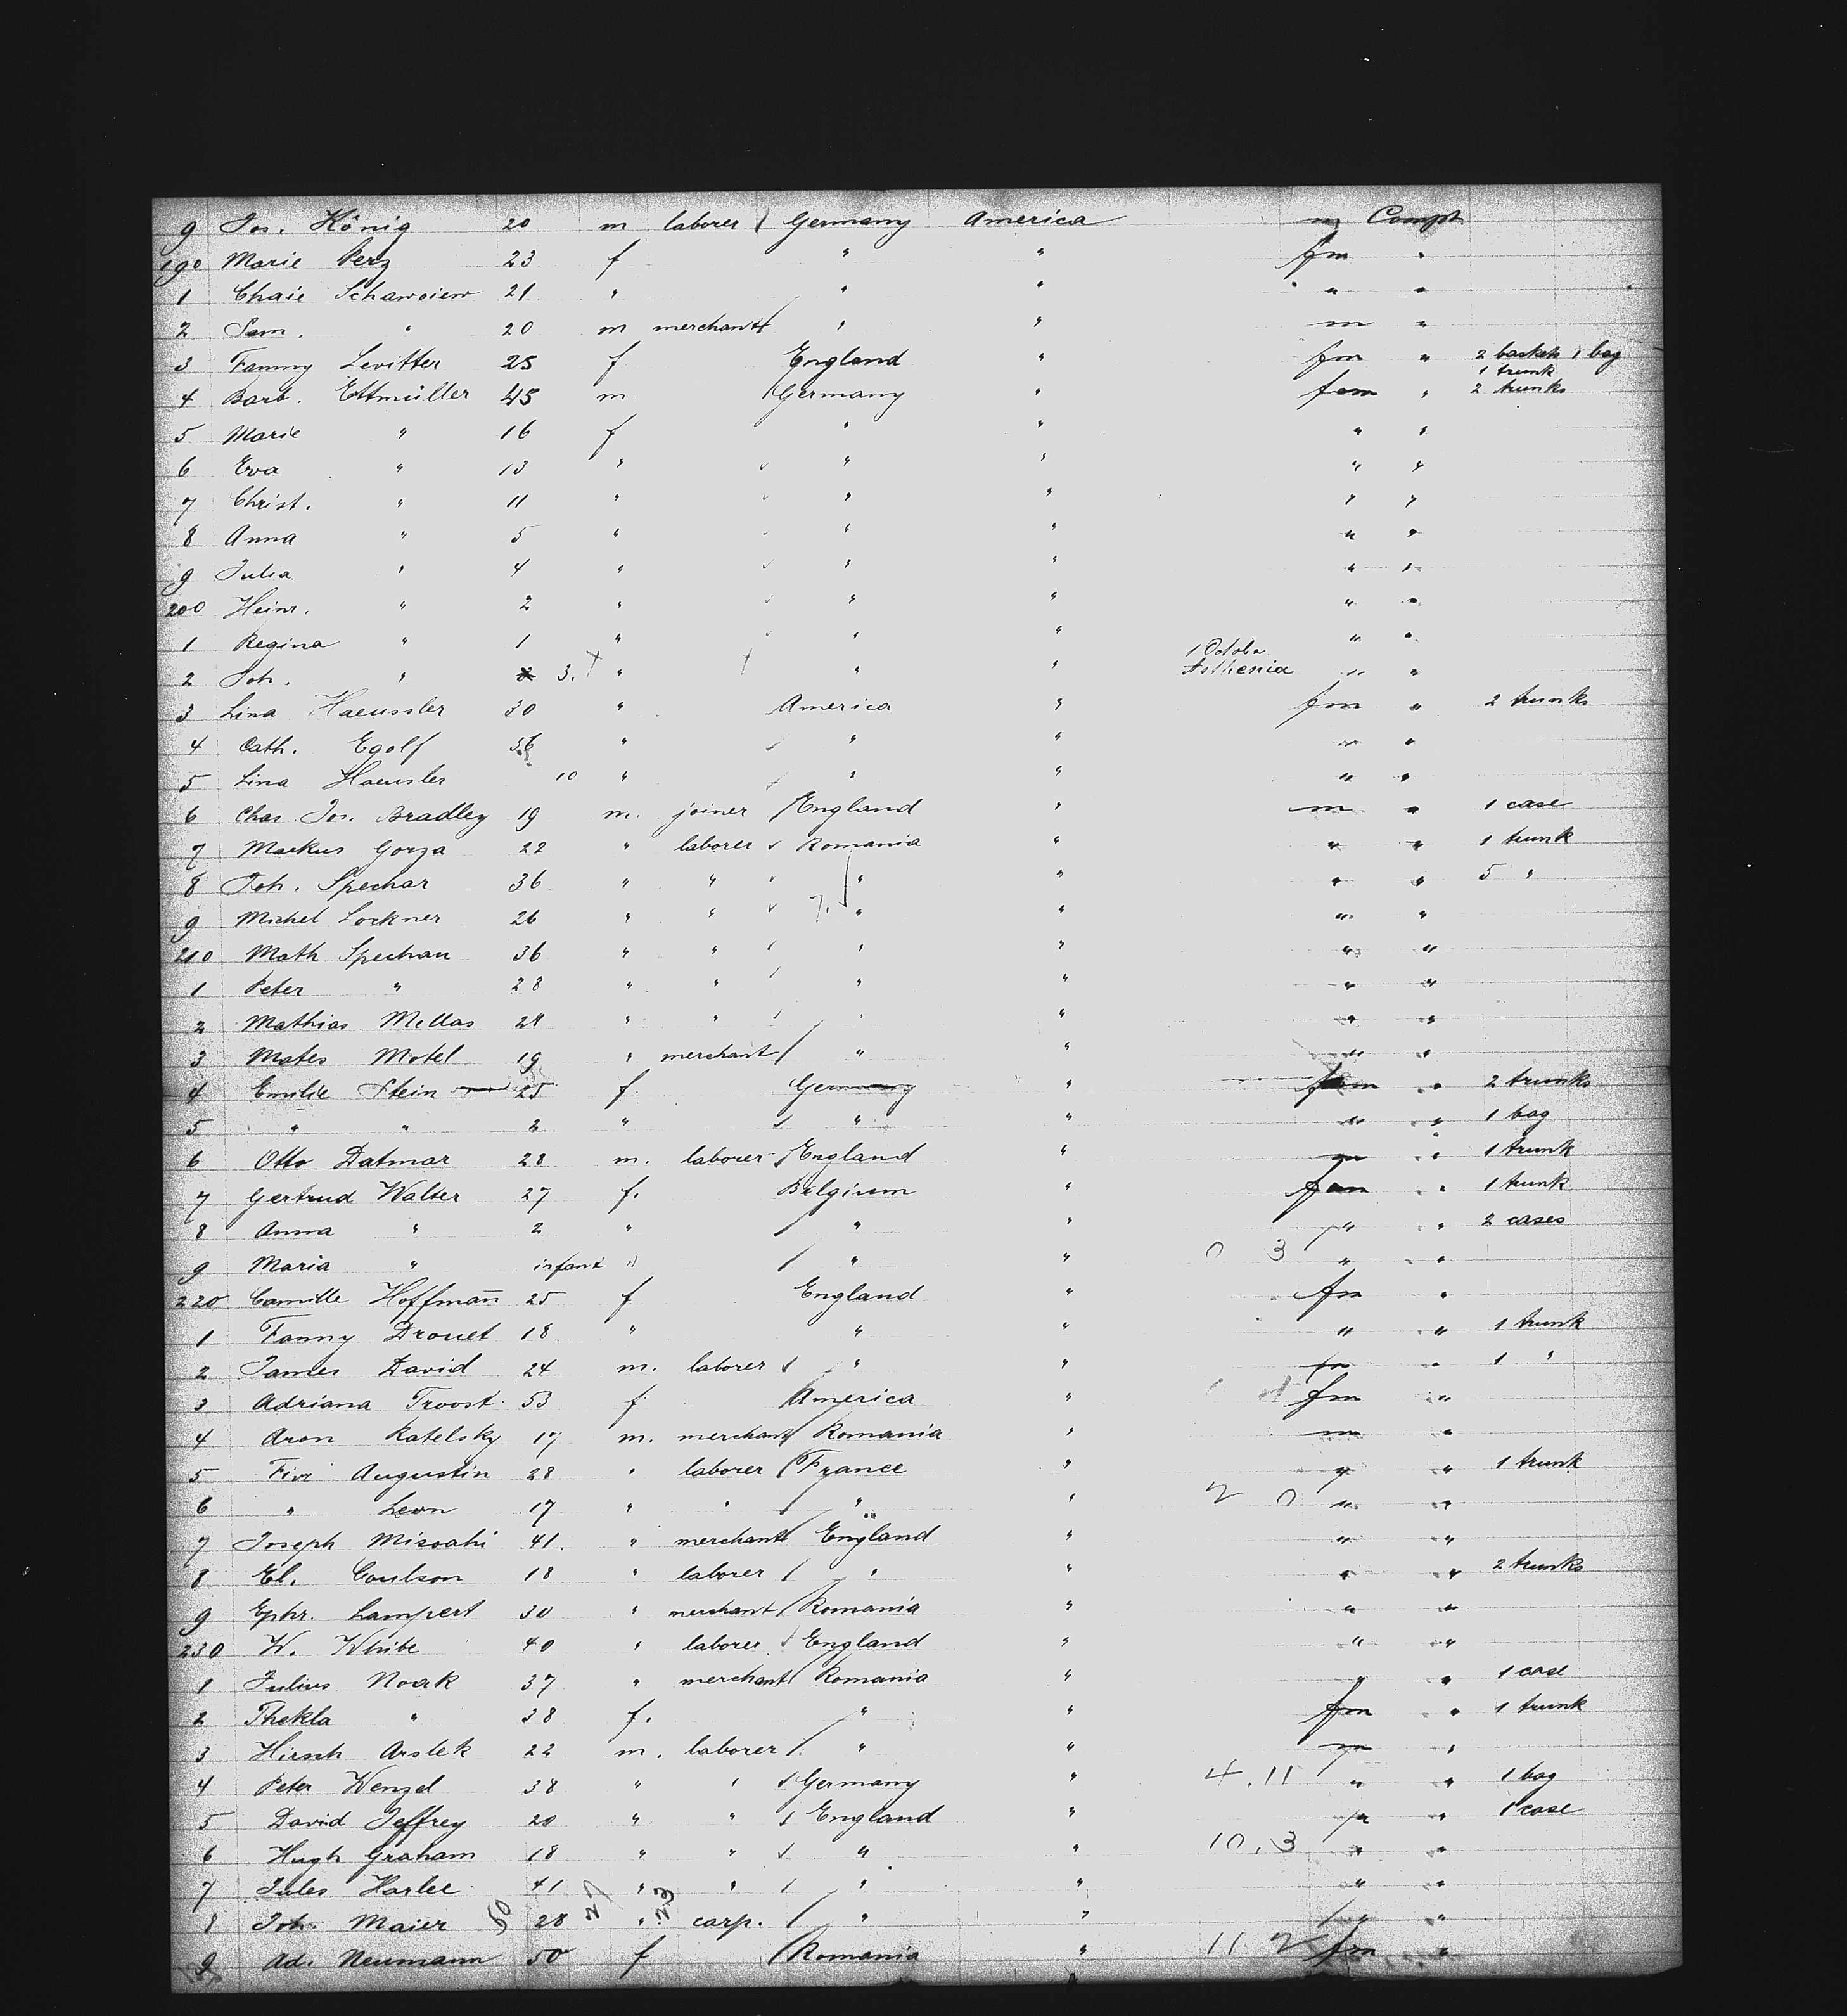 9 Jos. König 20 m laborer Germany America m Compt
190 Marie Perz 23 f " " fm "
1 Chaie Schawoiew 21 " " " " "
2 Sam. " 20 m merchant " " m "
3 Fanny Levitter 25 f England " fm " 2 baskets 1 bag
1 trunk
4 Barb. Ettmüller 45 m Germany " fam " 2 trunks
5 Marie " 16 f " " " "
6 Eva " 13 " " " " "
7 Christ. " 11 " " " " "
8 Anna " 5 " " " " "
9 Julia " 4 " " " " "
200 Heinr. " 2 " " " " "
1 Regina " 1 " " " " "
1 October
2 Joh. " 3. " " " Asthenia " "
3 Lina Haeussler 30 " America " fm " 2 trunks
4 Cath. Egolf 56 " " " " "
5 Lina Haeusler 10 " " " " "
6 Chas. Jos. Bradley 19 m. joiner England " m " 1 case
7 Markus Gorza 22 " laborer Romania " " " 1 trunk
8 Joh. Spechar 36 " " " " " " 5 "
9 Michel Lockner 26 " " 7. " " " "
210 Math Spechan 36 " " " " " "
1 Peter " 28 " " " " " "
2 Mathias Mellas 28 " " " " " "
3 Mates Motel 19 " merchant " " " "
4 Emilie Stein 25 f Germany " fam " 2 trunks
5 " " 2 " " " " " 1 bag
6 Otto Datmar 28 m. laborer England " m " 1 trunk
7 Gertrud Walter 27 f. Belgium " fam " 1 trunk
8 Anna " 2 " " " " " 2 cases
9 Maria " infant " " " 0 3 " "
220 Camille Hoffman̄ 25 f England " fm "
1 Fanny Drouet 18 " " " " " 1 trunk
2 James David 24 m. laborer " " m " 1 "
3 Adriana Troost 53 f America " fm "
4 Aron Katelsky 17 m. merchant Romania " m "
5 Fivi Augustin 28 " laborer France " " " 1 trunk
6 " Leon 17 " " " " 2 0 " "
7 Joseph Misvahi 41. " merchant England " " "
8 El. Coulson 18 " laborer " " " " 2 trunks
9 Ephr. Lampert 30 " merchant Romania " " "
230 W. White 40 " laborer England " " "
1 Julius Noak 37 " merchant Romania " " " 1 case
2 Thekla " 38 f. " " fm " 1 trunk
3 Hirsch Arslek 22 m. laborer " " m "
4 Peter Wenzel 38 " " Germany " 4.11 " " 1 bag
5 David Jeffrey 20 " " England " " " 1 case
6 Hugh Graham 18 " " " " 10.3 " "
7 Jules Harlee 41 " " " " " "
8 Joh. Maier 50 28 27 " 23 carp. " " " "
9 Ad. Neumann 50 f Romania " 11 2 fm "